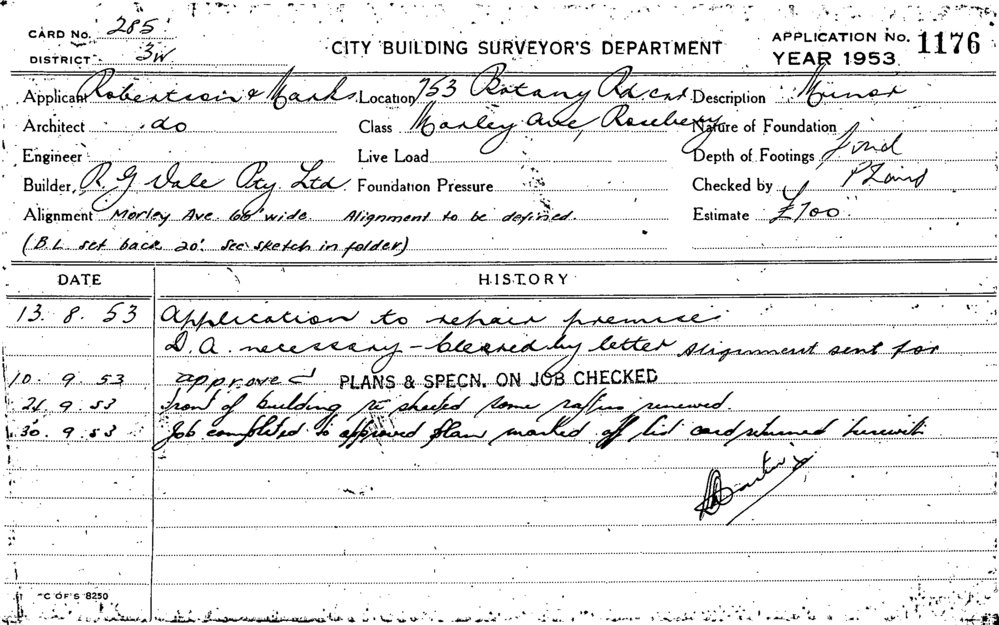 CARD No. 285
DISTRICT 3W
CITY BUILDING SURVEYOR'S DEPARTMENT
APPLICATION No. 1176
YEAR 1953
Applicant Robertson & Marks Location 753 Botany Rd. cnr Description Minor
Architect do Class Morley Ave, Rosebery Nature of Foundation
Engineer Live Load Depth of Footings
Builder R G Vale Pty Ltd Foundation Pressure Checked by
Alignment Morley Ave. 66' wide. Alignment to be defined. Estimate £700
(B.L. set back 20'. See sketch in folder)
DATE HISTORY
13. 8. 53 Application to repair premises
D.A. necessary – cleared by letter Alignment sent for
10. 9. 53 approved PLANS & SPECN. ON JOB CHECKED
24. 9. 53 Front of building re sheeted some rafters renewed.
30. 9. 53 Job completed to approved plan marked off list card returned herewith
C OF S 8250